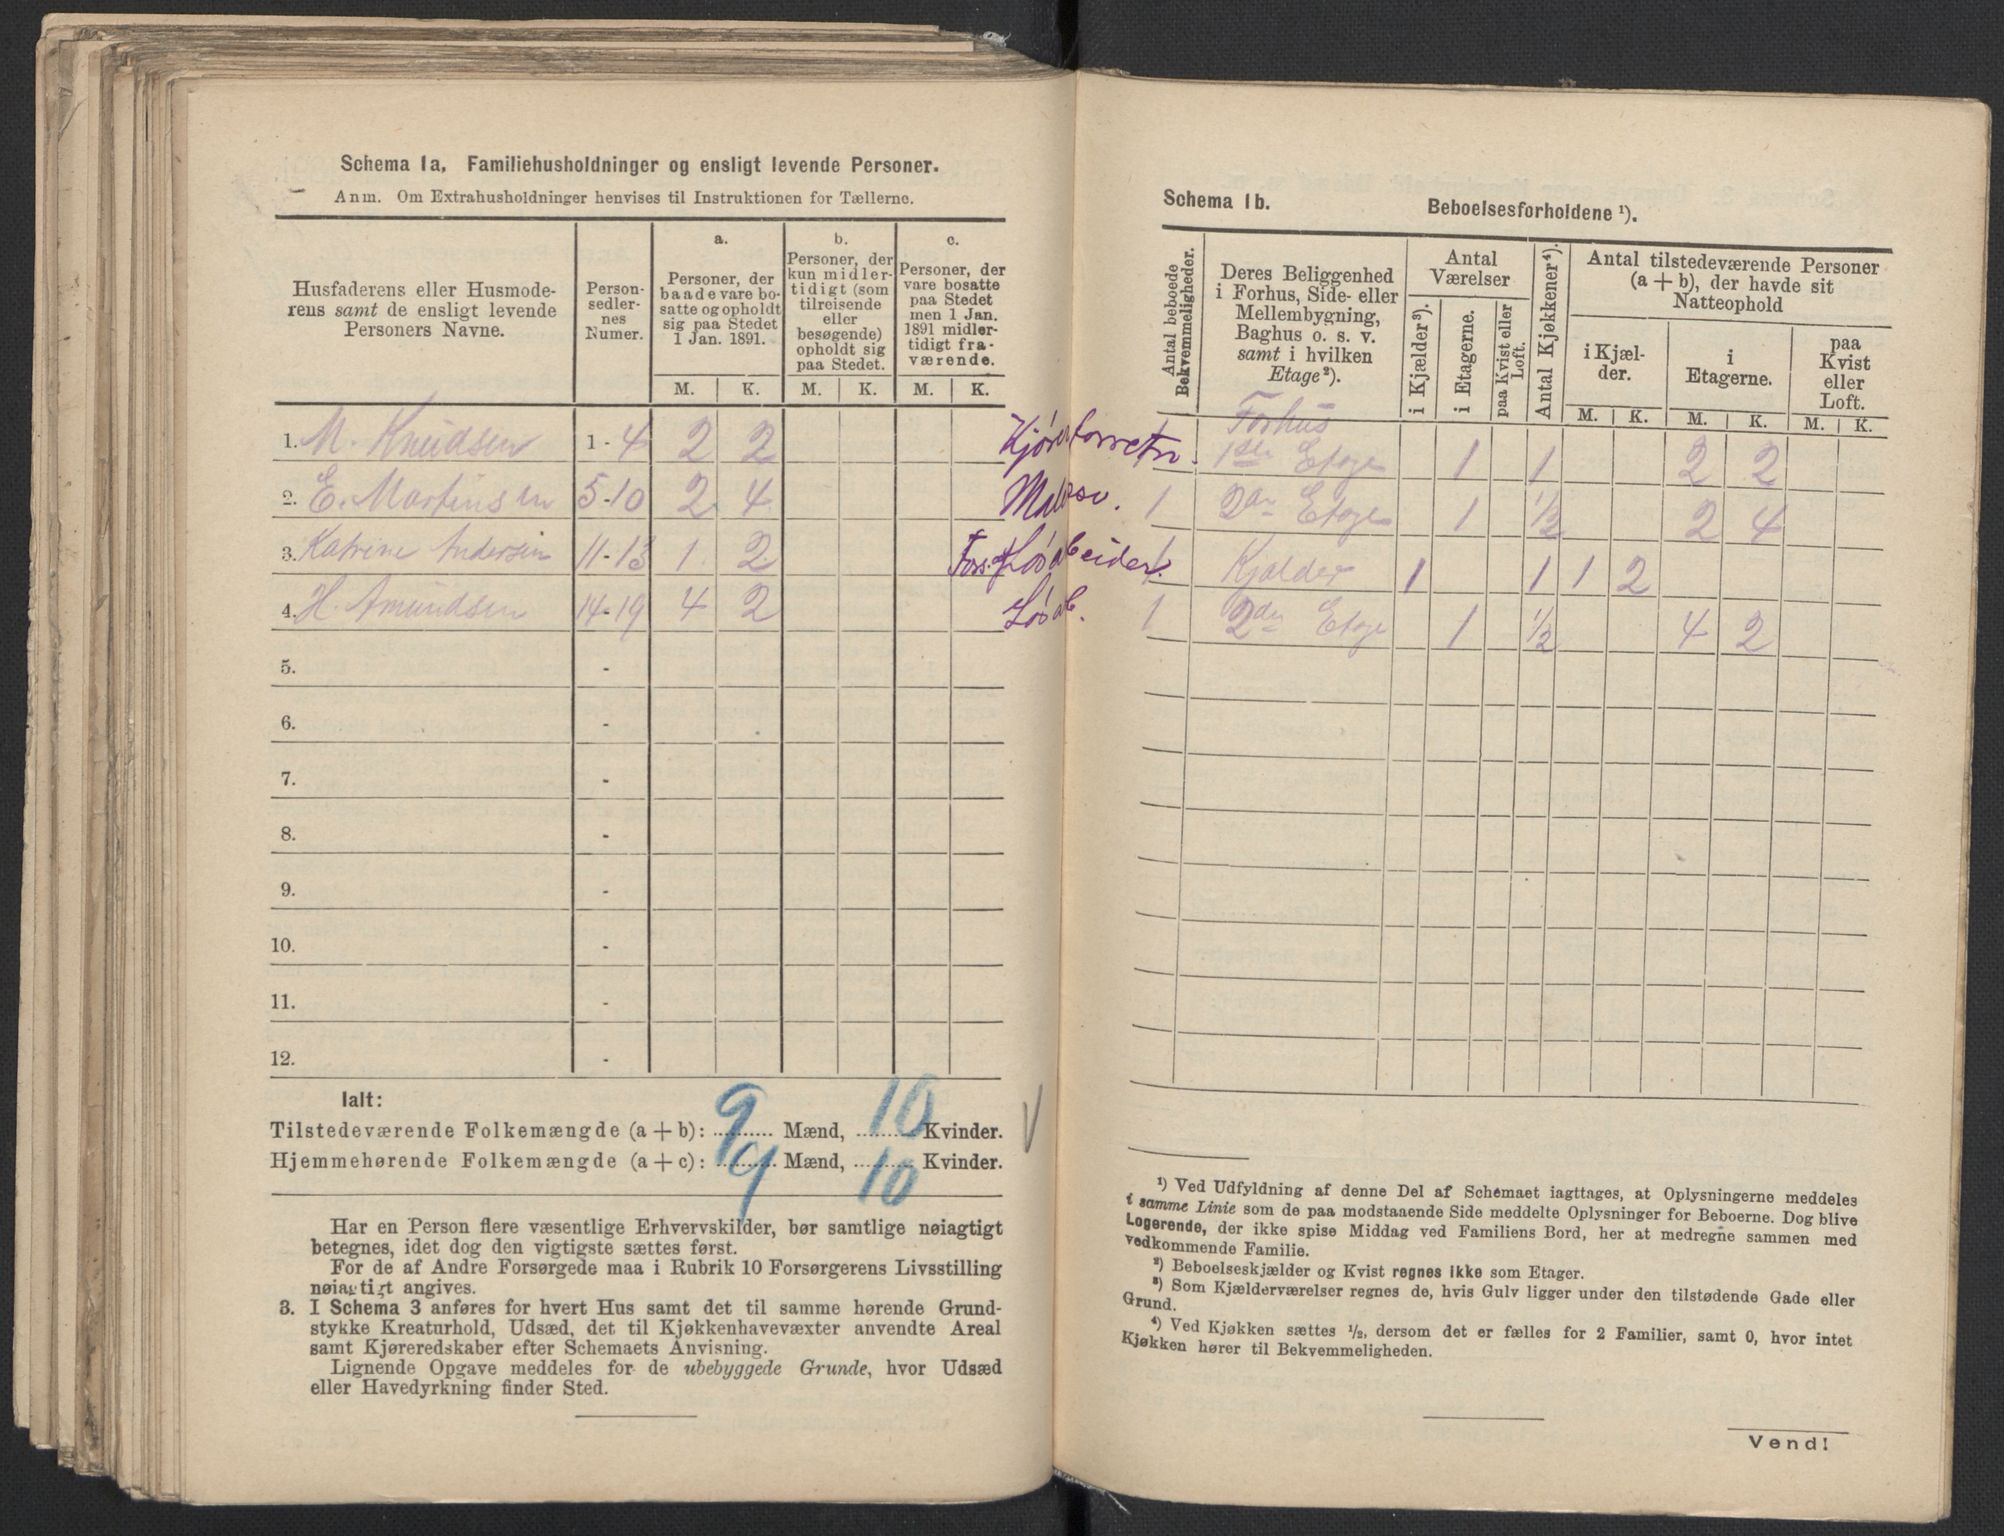 Schema 1a. Familiehusholdninger og ensligt levende Personer.
Anm. Om Extrahusholdninger henvises til Instruktionen for Tællerne.
Husfaderens eller Husmoderens samt de ensligt levende Personers Navne. | Personsedlernes Numer. | a. Personer, der baade vare bosatte og opholdt sig paa Stedet 1 Jan. 1891. | b. Personer, der kun midlertidigt (som tilreisende eller besøgende) opholdt sig paa Stedet. | c. Personer, der vare bosatte paa Stedet men 1 Jan. 1891 midlertidigt fraværende.
M. K. M. K. M. K.
1. M. Knudsen 1-4 2 2 Kjørerforretn.
2. E. Martinsen 5-10 2 4
3. Katrine Andersen 11-13 1 2 Fors. af Løsarbeider.
4. H. Amundsen 14-19 4 2 Løsab.
5. -
6. -
7. -
8. -
9. -
10. -
11. -
12. -
Ialt:
Tilstedeværende Folkemængde (a + b): 9 Mænd, 10 Kvinder.
Hjemmehørende Folkemængde (a + c): 9 Mænd, 10 Kvinder.
Har en Person flere væsentlige Erhvervskilder, bør samtlige nøiagtigt
betegnes, idet dog den vigtigste sættes først.
For de af Andre Forsørgede maa i Rubrik 10 Forsørgerens Livsstilling
nøiagtigt angives.
3. I Schema 3 anføres for hvert Hus samt det til samme hørende Grund-
stykke Kreaturhold, Udsæd, det til Kjøkkenhavevæxter anvendte Areal
samt Kjøreredskaber efter Schemaets Anvisning.
Lignende Opgave meddeles for de ubebyggede Grunde, hvor Udsæd
eller Havedyrkning finder Sted.
Schema 1b. Beboelsesforholdene ¹).
Antal beboede Bekvemmeligheder. | Deres Beliggenhed i Forhus, Side- eller Mellembygning, Baghus o. s. v. samt i hvilken Etage²). | Antal Værelser | i Kjælder³). | i Etagerne. | paa Kvist eller Loft. | Antal Kjøkkener⁴). | Antal tilstedeværende Personer (a + b), der havde sit Natteophold
i Kjælder. | i Etagerne. | paa Kvist eller Loft.
M. K. M. K. M. K.
Forhus
1 1ste Etage 1 1 2 2
1 2den Etage 1 1/2 2 4
1 Kjælder 1 1 1 2
1 2den Etage 1 1/2 4 2
¹) Ved Udfyldning af denne Del af Schemaet iagttages, at Oplysningerne meddeles
i samme Linie som de paa modstaaende Side meddelte Oplysninger for Beboerne. Dog blive
Logerende, der ikke spise Middag ved Familiens Bord, her at medregne sammen med
vedkommende Familie.
²) Beboelseskjælder og Kvist regnes ikke som Etager.
³) Som Kjælderværelser regnes de, hvis Gulv ligger under den tilstødende Gade eller
Grund.
⁴) Ved Kjøkken sættes ½, dersom det er fælles for 2 Familier, samt 0, hvor intet
Kjøkken hører til Bekvemmeligheden.
Vend!